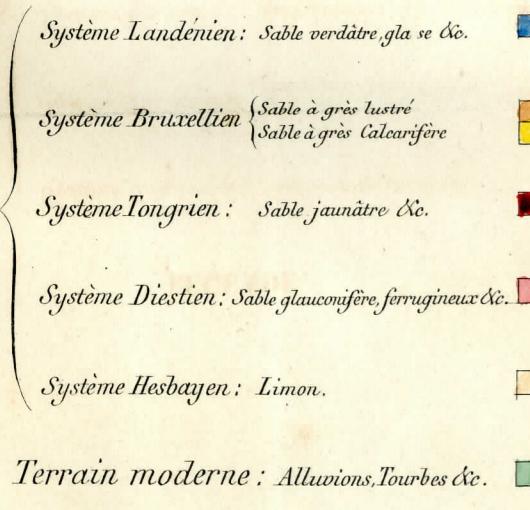 Système Landénien: Sable verdâtre, gla se &c.
Système Bruxellien
Sable à grès lustré
Sable à grès Calcarifère
Système Tongrien: Sable jaunâtre &c.
Système Diestien: Sable glauconifère, ferrugineux &c.
Système Hesbayen: Limon.
Terrain moderne: Alluvions, Tourbes &c.